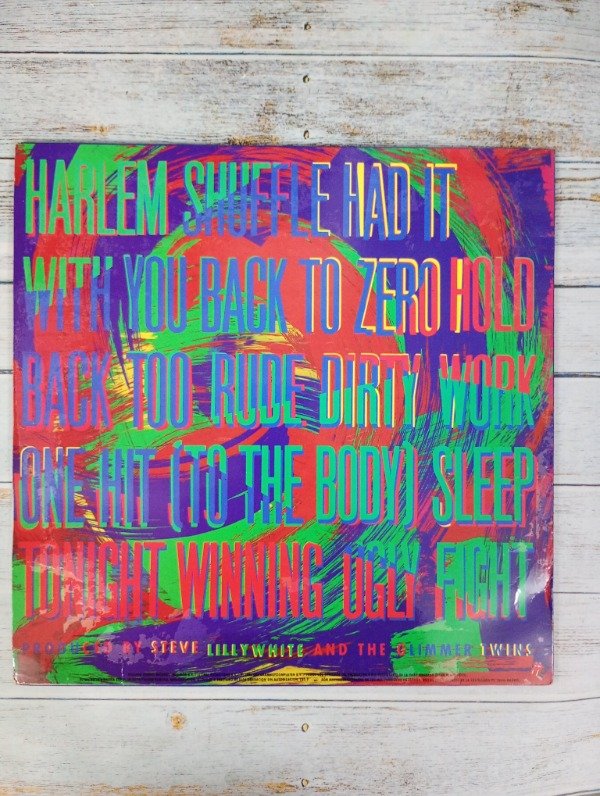 HARLEM SHUFFLE HAD IT
WITH YOU BACK TO ZERO HOLD
BACK TOO RUDE DIRTY WORK
ONE HIT (TO THE BODY) SLEEP
TONIGHT WINNING UGLY FIGHT
PRODUCED BY STEVE LILLYWHITE AND THE GLIMMER TWINS